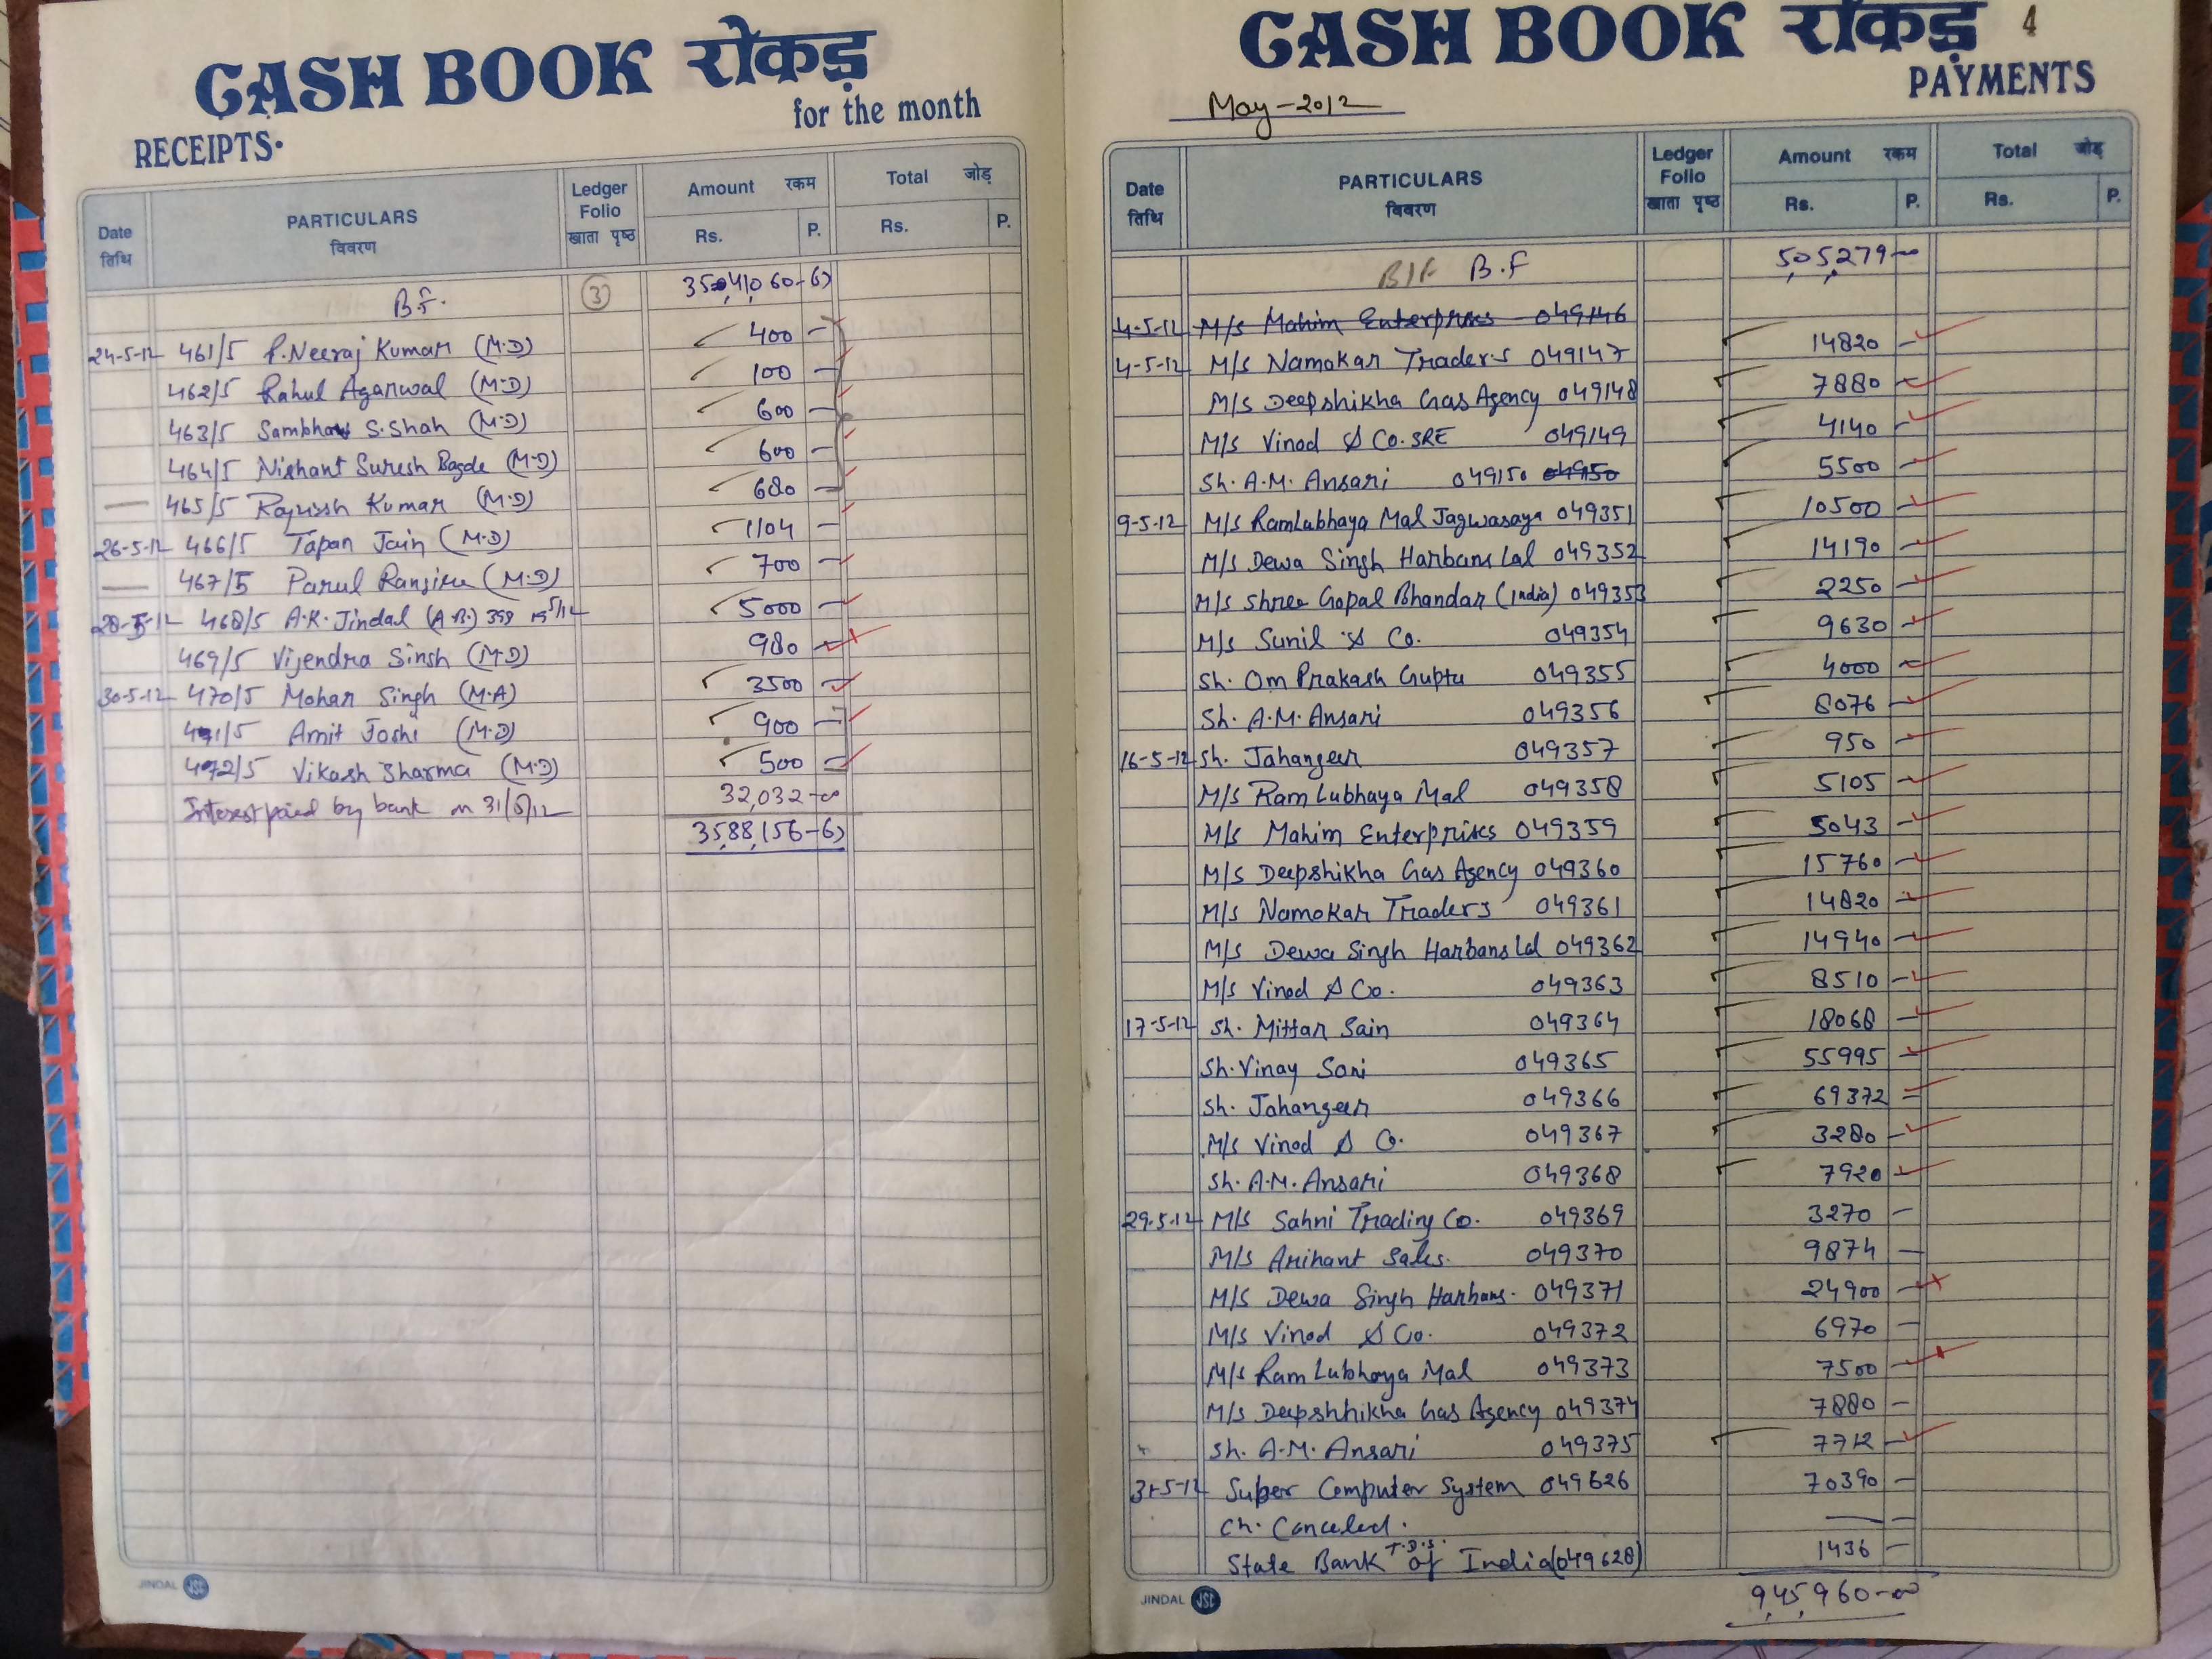 CASH BOOK रोकड़
for the month
RECEIPTS.
Date तिथि PARTICULARS विवरण Ledger Folio खाता पृष्ठ Amount रकम Rs. P. Total जोड़ Rs. P.
B.F. 3 35,41,060-63
24-5-12 461/5 P. Neeraj Kumar (M.D) 400 -
462/5 Rahul Agarwal (M.D) 100 -
463/5 Sambhav S. Shah (M.D) 600 -
464/5 Nishant Suresh Bagde (M.D) 600 -
465/5 Kumar (M.D) 680 -
26-5-12 466/5 Tapan Jain (M.D) 1104 -
467/5 Parul (M.D) 700 -
28-5-12 468/5 A.K. Jindal (A.B.) 5000 -
469/5 Vijendra Singh (M.D) 980 -
30-5-12 470/5 Mohan Singh (M.A) 3500 -
471/5 Amit Joshi (M.D) 900 -
472/5 Vikash Sharma (M.D) 500 -
Interest paid by bank on 31/5/12 32,032-00
35,88,156-63
JINDAL JSC
CASH BOOK रोकड़ 4
PAYMENTS
May-2012
Date तिथि PARTICULARS विवरण Ledger Folio खाता पृष्ठ Amount रकम Rs. P. Total जोड़ Rs. P.
B/F B.F 5,05,279-00
4-5-12 M/s Mahim Enterprises 049146
4-5-12 M/s Namokar Traders 049147 14820 -
M/s Deepshikha Gas Agency 049148 7880 -
M/s Vinod & Co. SRE 049149 4140 -
Sh. A.M. Ansari 049150 04950 5500 -
9-5-12 M/s Ramlubhaya Mal Jagwasaya 049351 10500 -
M/s Dewa Singh Harbans Lal 049352 14190 -
M/s Shree Gopal Bhandar (India) 049353 2250 -
M/s Sunil & Co. 049354 9630 -
Sh. Om Prakash Gupta 049355 4000 -
Sh. A.M. Ansari 049356 8076 -
16-5-12 Sh. Jahangeer 049357 950 -
M/s Ram Lubhaya Mal 049358 5105 -
M/s Mahim Enterprises 049359 5043 -
M/s Deepshikha Gas Agency 049360 15760 -
M/s Namokar Traders 049361 14820 -
M/s Dewa Singh Harbans Lal 049362 14940 -
M/s Vinod & Co. 049363 8510 -
17-5-12 Sh. Mittar Sain 049364 18068 -
Sh. Vinay Soni 049365 55995 -
Sh. Jahangeer 049366 69372 -
M/s Vinod & Co. 049367 3280 -
Sh. A.M. Ansari 049368 7920 -
29-5-12 M/s Sahni Trading Co. 049369 3270 -
M/s Arihant Sales. 049370 9874 -
M/s Dewa Singh Harbans. 049371 24900 -
M/s Vinod & Co. 049372 6970 -
M/s Ram Lubhaya Mal 049373 7500 -
M/s Deepshhikha Gas Agency 049374 7880 -
Sh. A.M. Ansari 049375 7712 -
31-5-12 Super Computer System 049626 70390 -
Ch. Canceled.
State Bank T.D.S. of India (049628) 1436 -
9,45,960-00
JINDAL JSC